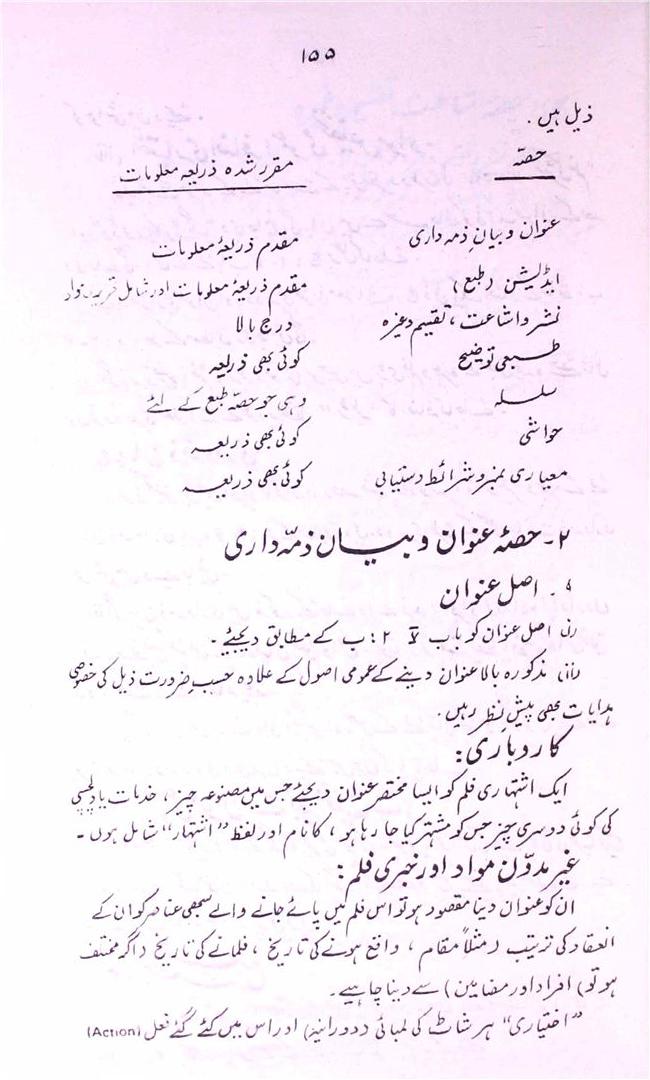 ۱۵۵
ذیل ہیں .
حصّہ مقرر شدہ ذریعہ معلومات
عنوان و بیانِ ذمہ داری مقدم ذریعۂ معلومات
ایڈیشن (طبع) مقدم ذریعۂ معلومات اور شامل
نشر و اشاعت ، تقسیم وغیرہ درج بالا
طبعی توضیح کوئی بھی ذریعہ
سلسلہ وہی جو حصّہ طبع کے لئے
حواشی کوئی بھی ذریعہ
معیاری نمبر و شرائط دستیابی کوئی بھی ذریعہ
۲ - حصّہ عنوان و بیان ذمّہ داری
۔ اصل عنوان
(i) اصل عنوان کو باب ۲ : ب کے مطابق دیجئیے ۔
(ii) مذکورہ بالا عنوان دینے کے عمومی اصول کے علاوہ حسبِ ضرورت ذیل کی خصوصی
ہدایات بھی پیش نظر رہیں .
کاروباری :
ایک اشتہاری فلم کو ایسا مختصر عنوان دیجئے جس میں مصنوعہ چیز ، خدمات یا دلچسپی
کی کوئی دوسری چیز جس کو مشتہر کیا جا رہا ہو ، کا نام اور لفظ "اشتہار" شامل ہوں ۔
غیر مدوّن مواد اور خبری فلم :
ان کو عنوان دینا مقصود ہو تو اس فلم میں پائے جانے والے سبھی عناصر کو ان کے
انعقاد کی ترتیب (مثلاً مقام ، واقع ہونے کی تاریخ ، فلمانے کی تاریخ (اگر مختلف
ہو تو) افراد اور مضامین) سے دینا چاہیے ۔
"اختیاری" ہر شاٹ کی لمبائی (دورانیۂ) اور اس میں کئے گئے فعل (Action)